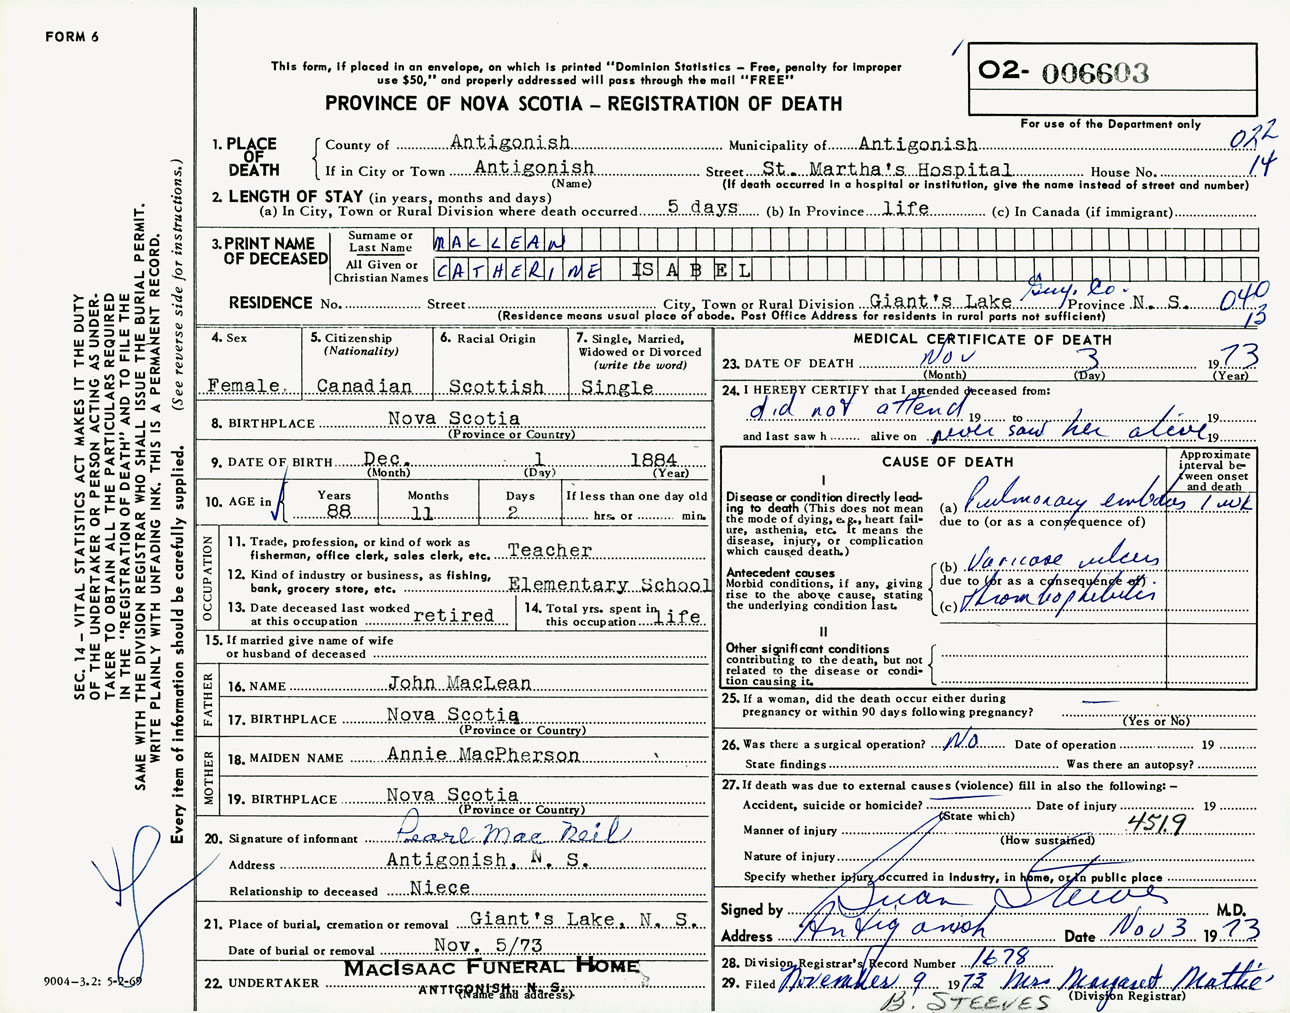 FORM 6
This form, if placed in an envelope, on which is printed "Dominion Statistics – Free, penalty for improper
use $50," and properly addressed will pass through the mail "FREE"
PROVINCE OF NOVA SCOTIA – REGISTRATION OF DEATH
O2- 006603
For use of the Department only
022
14
1. PLACE OF DEATH
County of Antigonish Municipality of Antigonish
If in City or Town Antigonish Street St. Martha's Hospital House No.
(Name) (If death occurred in a hospital or institution, give the name instead of street and number)
2. LENGTH OF STAY (in years, months and days)
(a) In City, Town or Rural Division where death occurred 5 days (b) In Province life (c) In Canada (if immigrant)
3. PRINT NAME OF DECEASED
Surname or Last Name MACLEAN
All Given or Christian Names CATHERINE ISABEL
Guy. Co.
RESIDENCE No. Street City, Town or Rural Division Giant's Lake Province N. S. 040
(Residence means usual place of abode. Post Office Address for residents in rural parts not sufficient) 13
4. Sex Female.
5. Citizenship (Nationality) Canadian
6. Racial Origin Scottish
7. Single, Married, Widowed or Divorced (write the word) Single
8. BIRTHPLACE Nova Scotia
(Province or Country)
9. DATE OF BIRTH Dec. 1 1884
(Month) (Day) (Year)
10. AGE in Years 88 Months 11 Days 2 If less than one day old hrs. or min.
OCCUPATION
11. Trade, profession, or kind of work as fisherman, office clerk, sales clerk, etc. Teacher
12. Kind of industry or business, as fishing, bank, grocery store, etc. Elementary School
13. Date deceased last worked at this occupation retired
14. Total yrs. spent in this occupation life
15. If married give name of wife
or husband of deceased
FATHER
16. NAME John MacLean
17. BIRTHPLACE Nova Scotia
(Province or Country)
MOTHER
18. MAIDEN NAME Annie MacPherson
19. BIRTHPLACE Nova Scotia
(Province or Country)
20. Signature of informant Pearl Mac Neil
Address Antigonish, N. S.
Relationship to deceased Niece
21. Place of burial, cremation or removal Giant's Lake, N. S.
Date of burial or removal Nov. 5/73
MACISAAC FUNERAL HOME
22. UNDERTAKER ANTIGONISH, N. S.
(Name and address)
MEDICAL CERTIFICATE OF DEATH
23. DATE OF DEATH Nov 3 1973
(Month) (Day) (Year)
24. I HEREBY CERTIFY that I attended deceased from:
did not attend 19 to 19
and last saw h alive on never saw her alive 19
CAUSE OF DEATH
Approximate interval between onset and death
I
Disease or condition directly leading to death (This does not mean the mode of dying, e.g., heart failure, asthenia, etc. It means the disease, injury, or complication which caused death.)
(a) Pulmonary embolus 1 wk
due to (or as a consequence of)
Antecedent causes
Morbid conditions, if any, giving rise to the above cause, stating the underlying condition last.
(b) Varicose ulcers
due to (or as a consequence of)
(c) thrombophlebitis
II
Other significant conditions
contributing to the death, but not related to the disease or condition causing it.
25. If a woman, did the death occur either during
pregnancy or within 90 days following pregnancy? —
(Yes or No)
26. Was there a surgical operation? No Date of operation 19
State findings Was there an autopsy?
27. If death was due to external causes (violence) fill in also the following: –
Accident, suicide or homicide? Date of injury 19
(State which)
Manner of injury 451.9
(How sustained)
Nature of injury
Specify whether injury occurred in industry, in home, or in public place
Signed by Steeves M.D.
Address Antigonish Date Nov 3 1973
28. Division Registrar's Record Number 1678
29. Filed November 9 1973 Mrs Margaret Mattie
(Division Registrar)
B. STEEVES
SEC. 14 – VITAL STATISTICS ACT MAKES IT THE DUTY
OF THE UNDERTAKER OR PERSON ACTING AS UNDER-
TAKER TO OBTAIN ALL THE PARTICULARS REQUIRED
IN THE "REGISTRATION OF DEATH" AND TO FILE THE
SAME WITH THE DIVISION REGISTRAR WHO SHALL ISSUE THE BURIAL PERMIT.
WRITE PLAINLY WITH UNFADING INK. THIS IS A PERMANENT RECORD.
Every item of information should be carefully supplied. (See reverse side for instructions.)
9004–3.2: 5-2-69